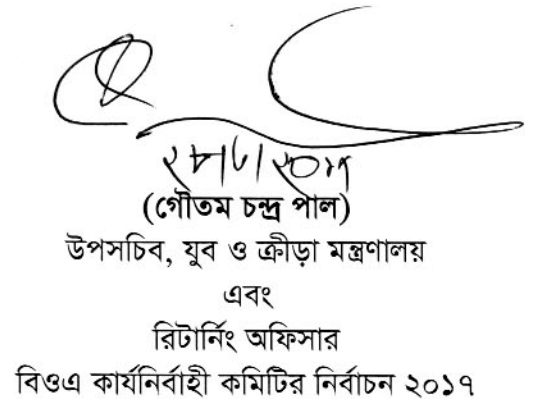 ২৮/৮/২০১৭
(গৌতম চন্দ্র পাল)
উপসচিব, যুব ও ক্রীড়া মন্ত্রণালয়
এবং
রিটার্নিং অফিসার
বিওএ কার্যনির্বাহী কমিটির নির্বাচন ২০১৭